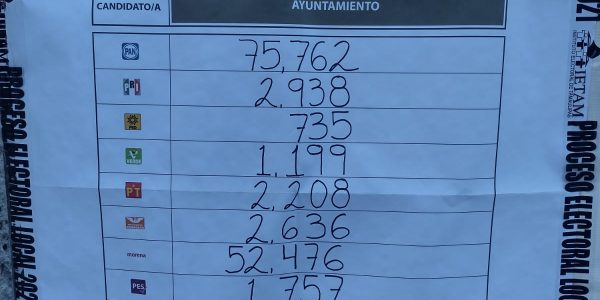 CANDIDATO/A AYUNTAMIENTO
PAN 75,762
PRI 2,938
PRD 735
VERDE 1,199
PT 2,208
2,636
morena 52,476
PES 1,757
PROCESO ELECTORAL LOCAL 202
21
IETAM
INSTITUTO ELECTORAL DE TAMAULIPAS
PROCESO ELECTORAL LOC